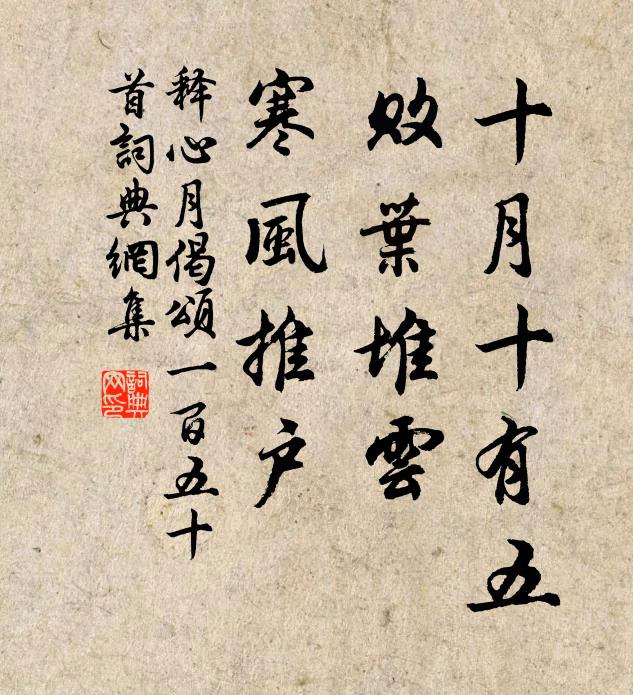 十月十有五
敗葉堆雲
寒風推户
释心月偈頌一百五十
首詞典網集
詞典网印